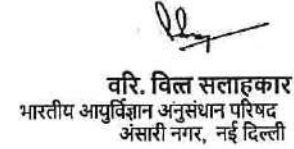 वरि. वित्त सलाहकार
भारतीय आयुर्विज्ञान अनुसंधान परिषद
अंसारी नगर, नई दिल्ली